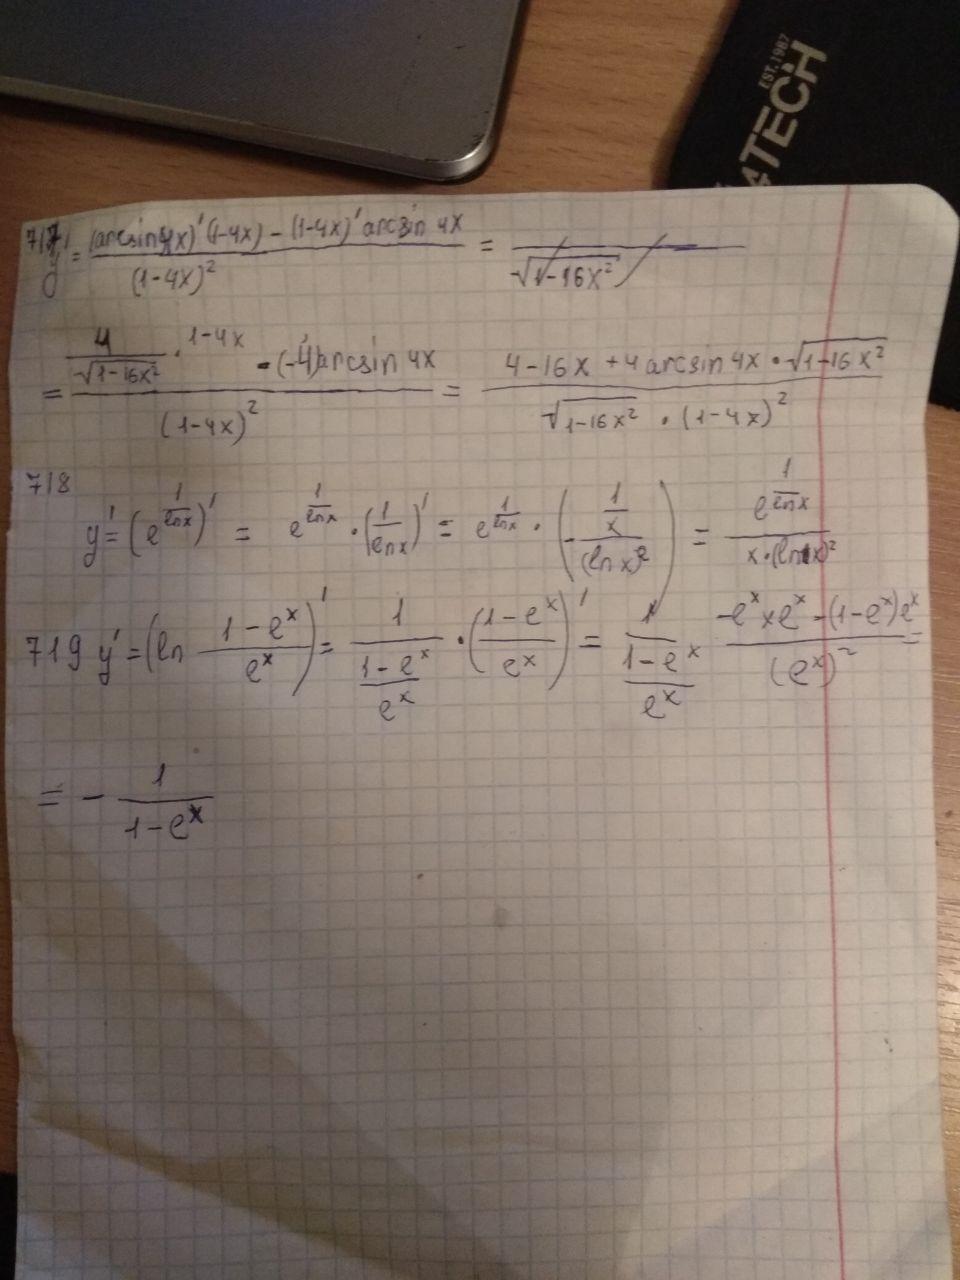 EST. 1987
A4TECH
717 y' = ((arcsin 4x)'(1-4x) - (1-4x)' arcsin 4x)/((1-4x)²) =
√(1-16x²)
= (4/√(1-16x²) · 1-4x - (-4)arcsin 4x)/((1-4x)²) = (4-16x + 4 arcsin 4x · √(1-16x²))/(√(1-16x²) · (1-4x)²)
718
y' = (e^(1/ln x))' = e^(1/ln x) · (1/ln x)' = e^(1/ln x) · (- (1/x)/((ln x)²)) = e^(1/ln x)/(x·(ln x)²)
719 y' = (ln (1-e^x)/e^x)' = 1/((1-e^x)/e^x) · ((1-e^x)/e^x)' = 1/((1-e^x)/e^x) × (-e^x × e^x - (1-e^x)e^x)/((e^x)²) =
= - 1/(1-e^x)